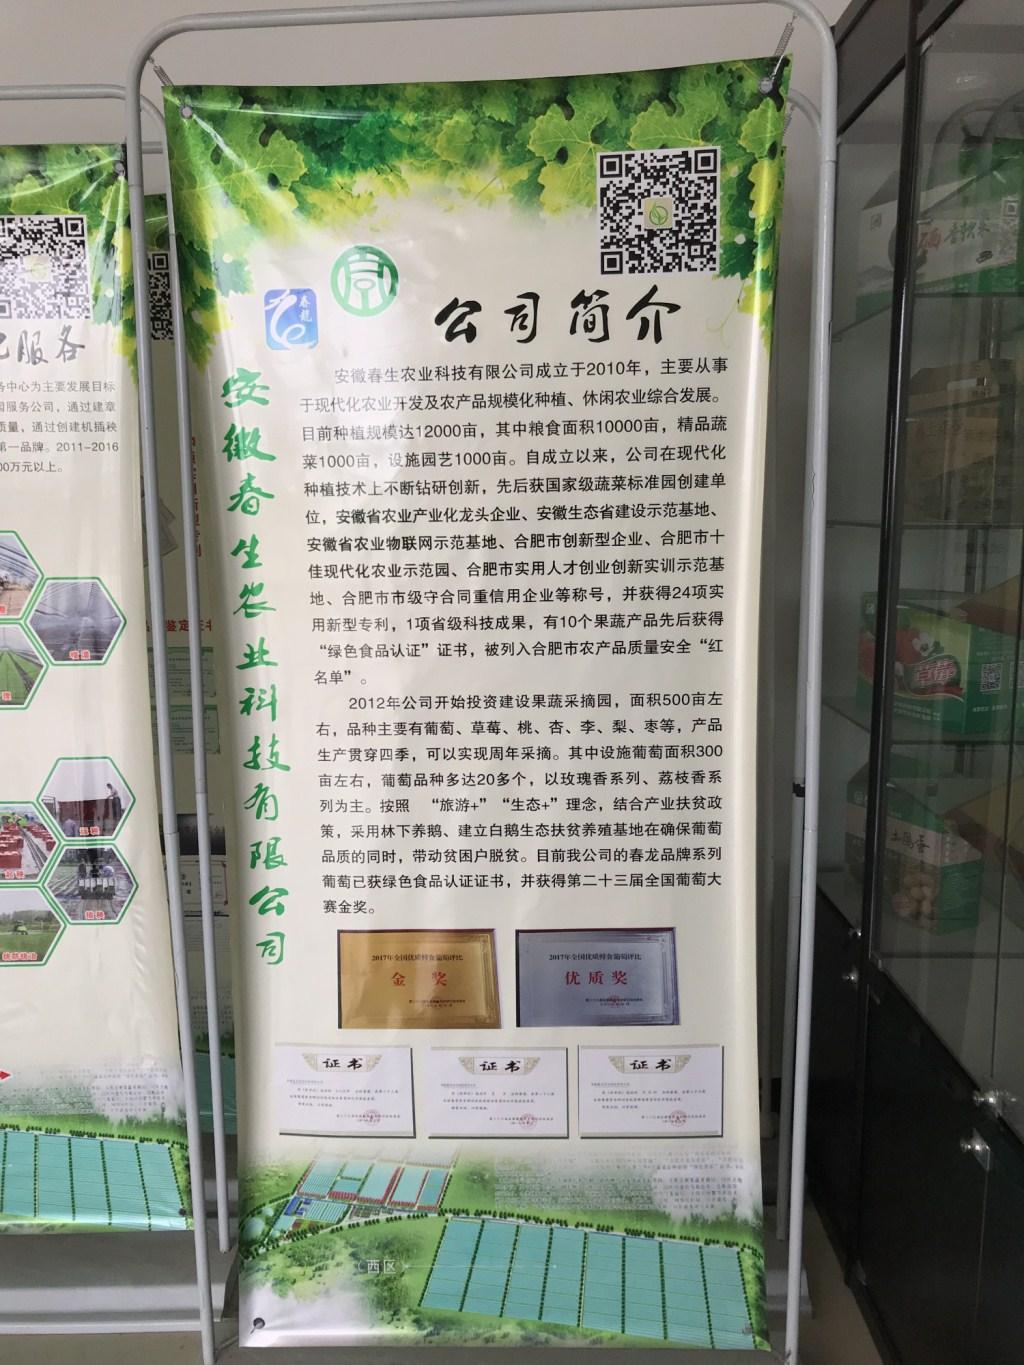 化服务
务中心为主要发展目标
国服务公司，通过建章
质量，通过创建机插秧
第一品牌。2011-2016
00万元以上。
春龍
公司简介
安徽春生农业科技有限公司
安徽春生农业科技有限公司成立于2010年，主要从事
于现代化农业开发及农产品规模化种植、休闲农业综合发展。
目前种植规模达12000亩，其中粮食面积10000亩，精品蔬
菜1000亩，设施园艺1000亩。自成立以来，公司在现代化
种植技术上不断钻研创新，先后获国家级蔬菜标准园创建单
位，安徽省农业产业化龙头企业、安徽生态省建设示范基地、
安徽省农业物联网示范基地、合肥市创新型企业、合肥市十
佳现代化农业示范园、合肥市实用人才创业创新实训示范基
地、合肥市市级守合同重信用企业等称号，并获得24项实
用新型专利，1项省级科技成果，有10个果蔬产品先后获得
“绿色食品认证”证书，被列入合肥市农产品质量安全“红
名单”。
2012年公司开始投资建设果蔬采摘园，面积500亩左
右，品种主要有葡萄、草莓、桃、杏、李、梨、枣等，产品
生产贯穿四季，可以实现周年采摘。其中设施葡萄面积300
亩左右，葡萄品种多达20多个，以玫瑰香系列、荔枝香系
列为主。按照 “旅游+” “生态+”理念，结合产业扶贫政
策，采用林下养鹅、建立白鹅生态扶贫养殖基地在确保葡萄
品质的同时，带动贫困户脱贫。目前我公司的春龙品牌系列
葡萄已获绿色食品认证证书，并获得第二十三届全国葡萄大
赛金奖。
2017年全国优质鲜食葡萄评比
金 奖
2017年全国优质鲜食葡萄评比
优质奖
证书
证书
证书
西区
草莓
土鸡蛋